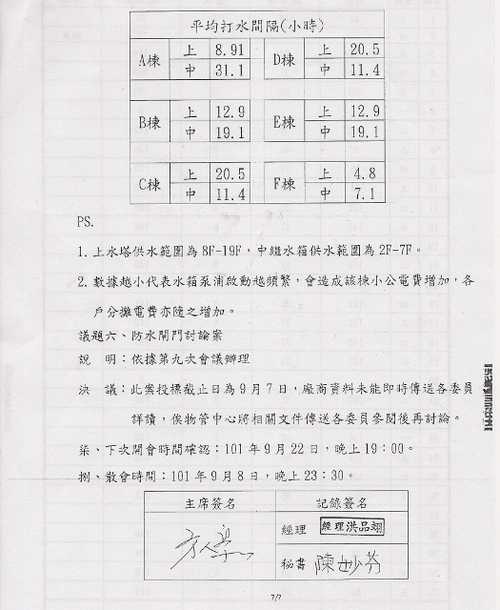 平均打水間隔(小時)
A棟 上 8.91 D棟 上 20.5
中 31.1 中 11.4
B棟 上 12.9 E棟 上 12.9
中 19.1 中 19.1
C棟 上 20.5 F棟 上 4.8
中 11.4 中 7.1
PS.
1.上水塔供水範圍為8F-19F，中繼水箱供水範圍為2F-7F。
2.數據越小代表水箱泵浦啟動越頻繁，會造成該棟小公電費增加，各
戶分攤電費亦隨之增加。
議題六、防水閘門討論案
說　明：依據第九次會議辦理
決　議：此案投標截止日為9月7日，廠商資料未能即時傳送各委員
詳讀，俟物管中心將相關文件傳送各委員參閱後再討論。
柒、下次開會時間確認：101年9月22日，晚上19：00。
捌、散會時間：101年9月8日，晚上23：30。
主席簽名 記錄簽名
經理 經理洪品翊
秘書 陳妙芬
7/7